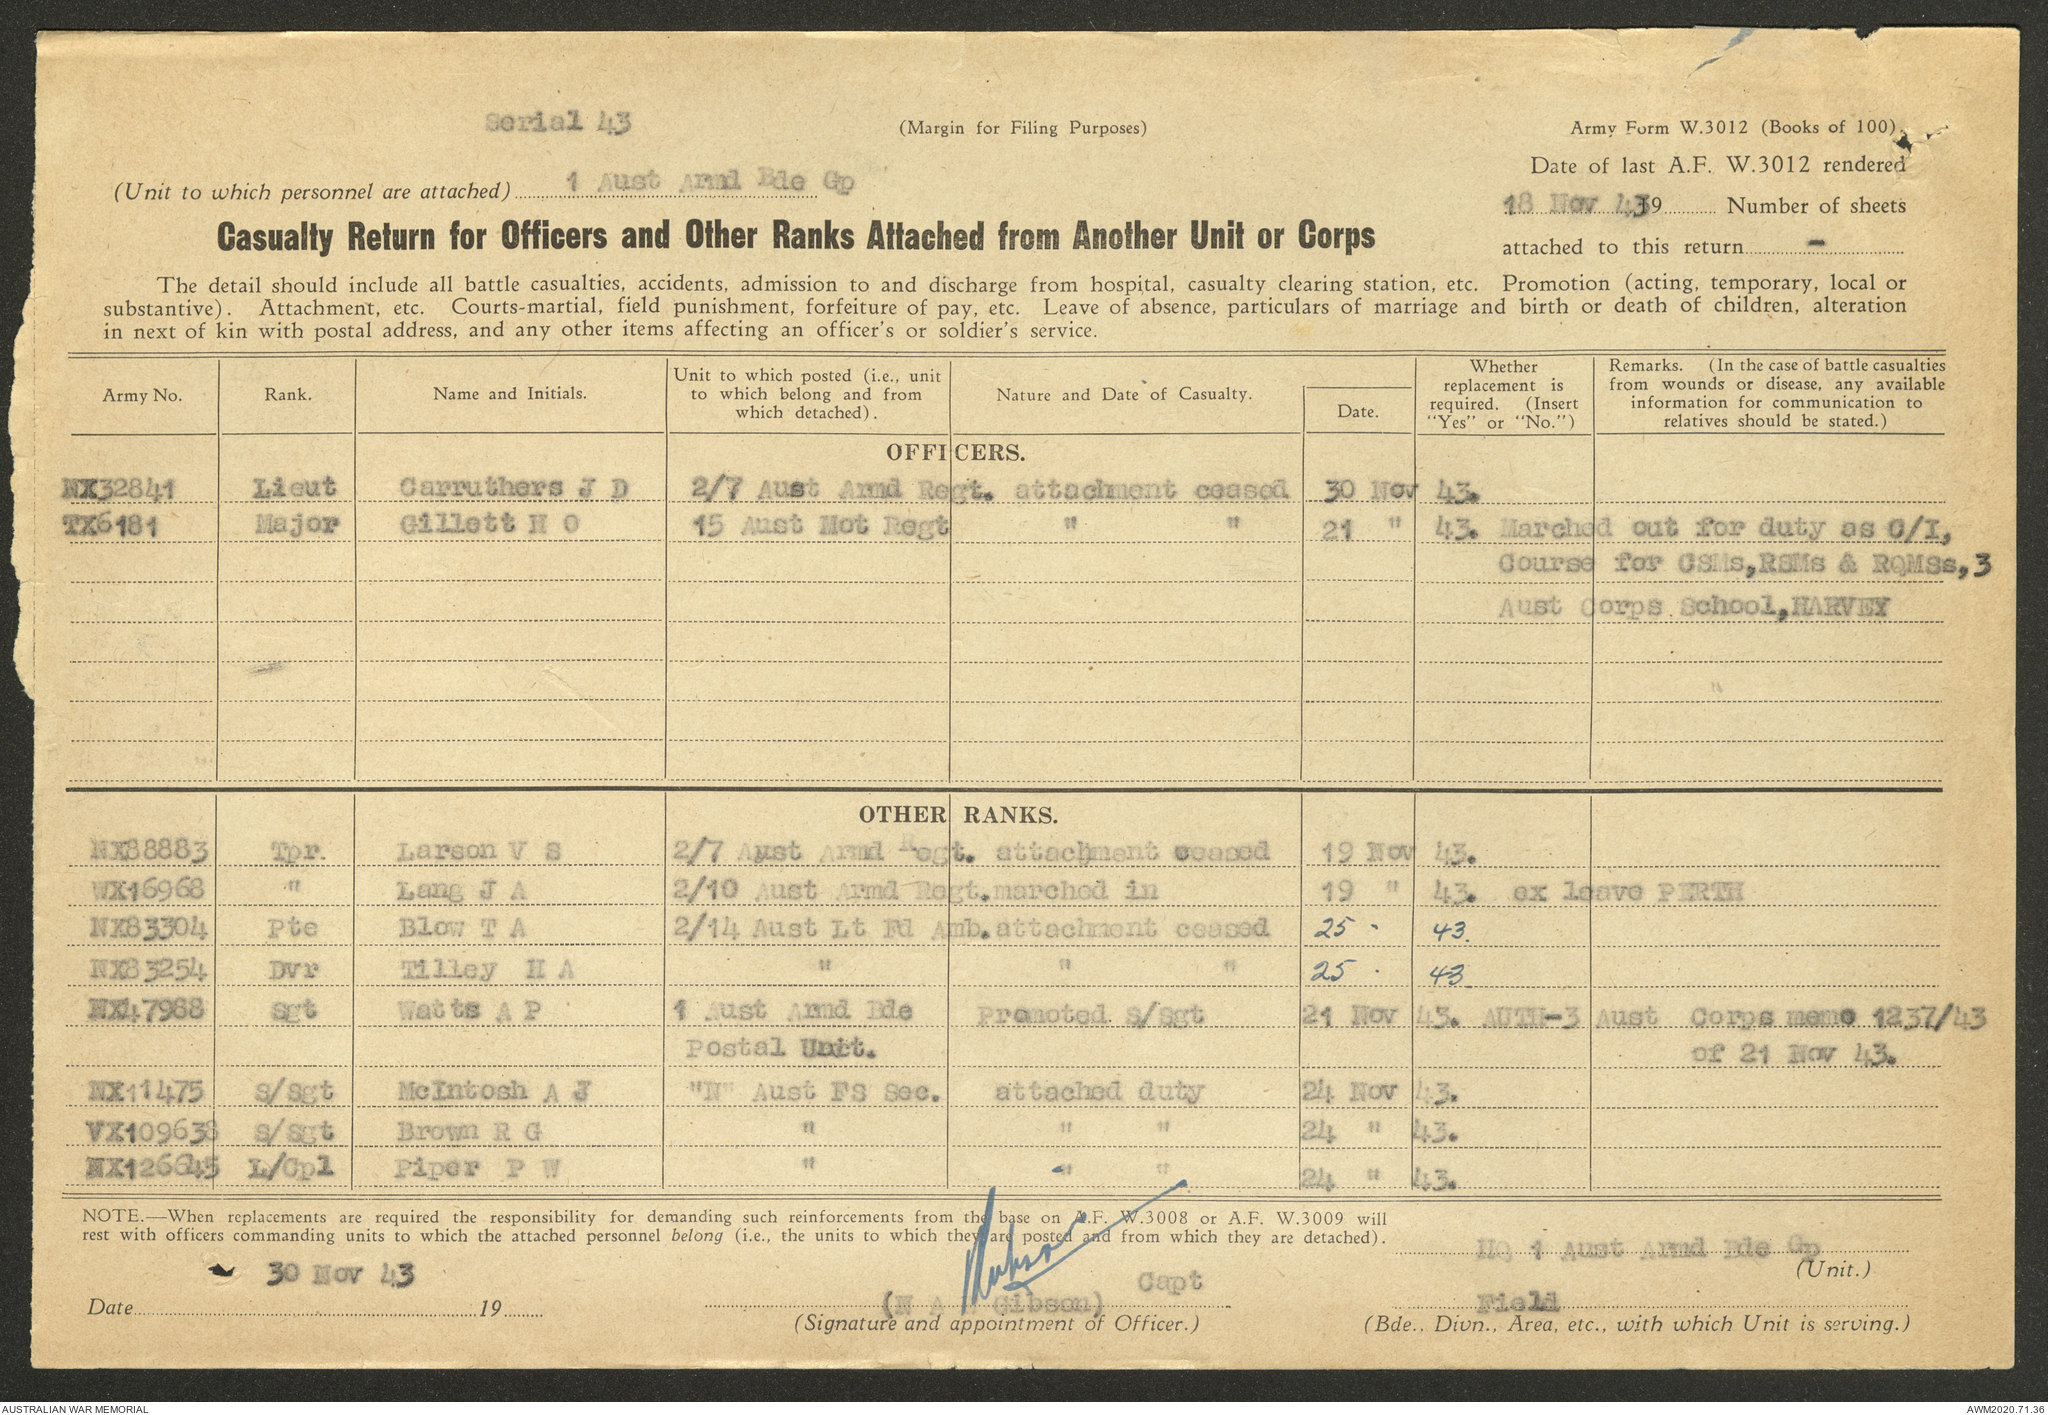 Serial 43
(Margin for Filing Purposes)
Army Form W.3012 (Books of 100).
Date of last A.F. W.3012 rendered
(Unit to which personnel are attached) 1 Aust Armd Bde Gp
18 Nov 43 19 Number of sheets
Casualty Return for Officers and Other Ranks Attached from Another Unit or Corps
attached to this return -
The detail should include all battle casualties, accidents, admission to and discharge from hospital, casualty clearing station, etc. Promotion (acting, temporary, local or
substantive). Attachment, etc. Courts-martial, field punishment, forfeiture of pay, etc. Leave of absence, particulars of marriage and birth or death of children, alteration
in next of kin with postal address, and any other items affecting an officer's or soldier's service.
Army No. Rank. Name and Initials. Unit to which posted (i.e., unit to which belong and from which detached). Nature and Date of Casualty. Date. Whether replacement is required. (Insert "Yes" or "No.") Remarks. (In the case of battle casualties from wounds or disease, any available information for communication to relatives should be stated.)
OFFICERS.
NX32841 Lieut Carruthers J D 2/7 Aust Armd Regt. attachment ceased 30 Nov 43.
TX6181 Major Gillett H O 15 Aust Mot Regt " " 21 " 43. Marched out for duty as C/I,
Course for CSMs,RSMs & RQMSs,3
Aust Corps School,HARVEY
OTHER RANKS.
NX88883 Tpr. Larson V S 2/7 Aust Armd Regt. attachment ceased 19 Nov 43.
WX16968 " Lang J A 2/10 Aust Armd Regt. marched in 19 " 43. ex leave PERTH
NX83304 Pte Blow T A 2/14 Aust Lt Fd Amb. attachment ceased 25 " 43.
NX83254 Dvr Tilley H A " " " 25 " 43
NX47988 Sgt Watts A P 1 Aust Armd Bde Promoted S/Sgt 21 Nov 43. AUTH-3 Aust Corps memo 1237/43
Postal Unit. of 21 Nov 43.
NX11475 S/Sgt McIntosh A J "N" Aust FS Sec. attached duty 24 Nov 43.
VX109638 S/Sgt Brown R G " " " 24 " 43.
NX126645 L/Cpl Piper P W " " " 24 " 43.
NOTE.—When replacements are required the responsibility for demanding such reinforcements from the base on A.F. W.3008 or A.F. W.3009 will
rest with officers commanding units to which the attached personnel belong (i.e., the units to which they are posted and from which they are detached).
HQ 1 Aust Armd Bde Gp
(Unit.)
30 Nov 43
Date 19
Capt
(N A Gibson)
(Signature and appointment of Officer.)
Field
(Bde., Divn., Area, etc., with which Unit is serving.)
AUSTRALIAN WAR MEMORIAL
AWM2020.71.36